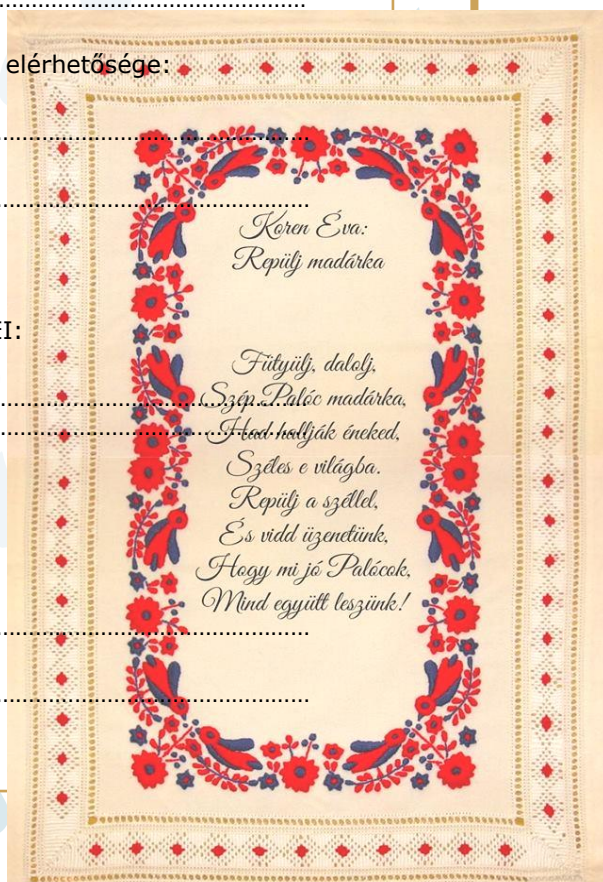 elérhetősége:
Koren Éva:
Repülj madárka
I:
Fütyülj, dalolj,
Szép Palóc madárka,
Had hallják éneked,
Széles e világba.
Repülj a széllel,
És vidd üzenetünk,
Hogy mi jó Palócok,
Mind együtt leszünk!